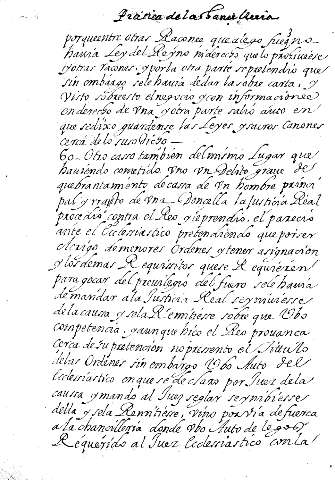 Practica de la Chancilleria
porque entre otras Raçones que alego fue q no
havia Ley del Reyno ni derecho que lo prohiviese
y otras raçones, y por la otra parte se pretendio que
sin embargo se le havia de dar la sobre carta, y
Visto sobre esto el negocio y con informaciones
en derecho de Vna, y otra parte salio auto en
que se dixo guardense las Leyes, y sacros Canones
cerca de lo susodicho
60 - Otro caso tambien del mismo Lugar que
haviendo cometido vno vn Delito grave de
quebrantamiento de cassa de Vn hombre princi
pal y rapto de Vna Doncella la Justicia Real
procedio contra el Reo, y le prendio, el parecio
ante el Ecclesiastico pretendiendo que por ser
clerigo de menores Ordenes y tener asignacion
y los demas Requisitos que se Requieren
para goçar del previllegio del fuero se le havia
de mandar a la Justicia Real se yniviese
de la causa, y se la Remitiese sobre que Vbo
competencia, y aunque hiço el Reo provança
cerca de su pretencion no presento el Titulo
de las Ordenes sin embargo Vbo Auto del
Ecclesiastico en que se declaro por Juez de la
causa y mando al Juez seglar se ynibiesse
della y se la Remitiese, vino por via de fuerça
a la chancilleria donde vbo Auto de legos y
Requerido al Juez Ecclesiastico con la